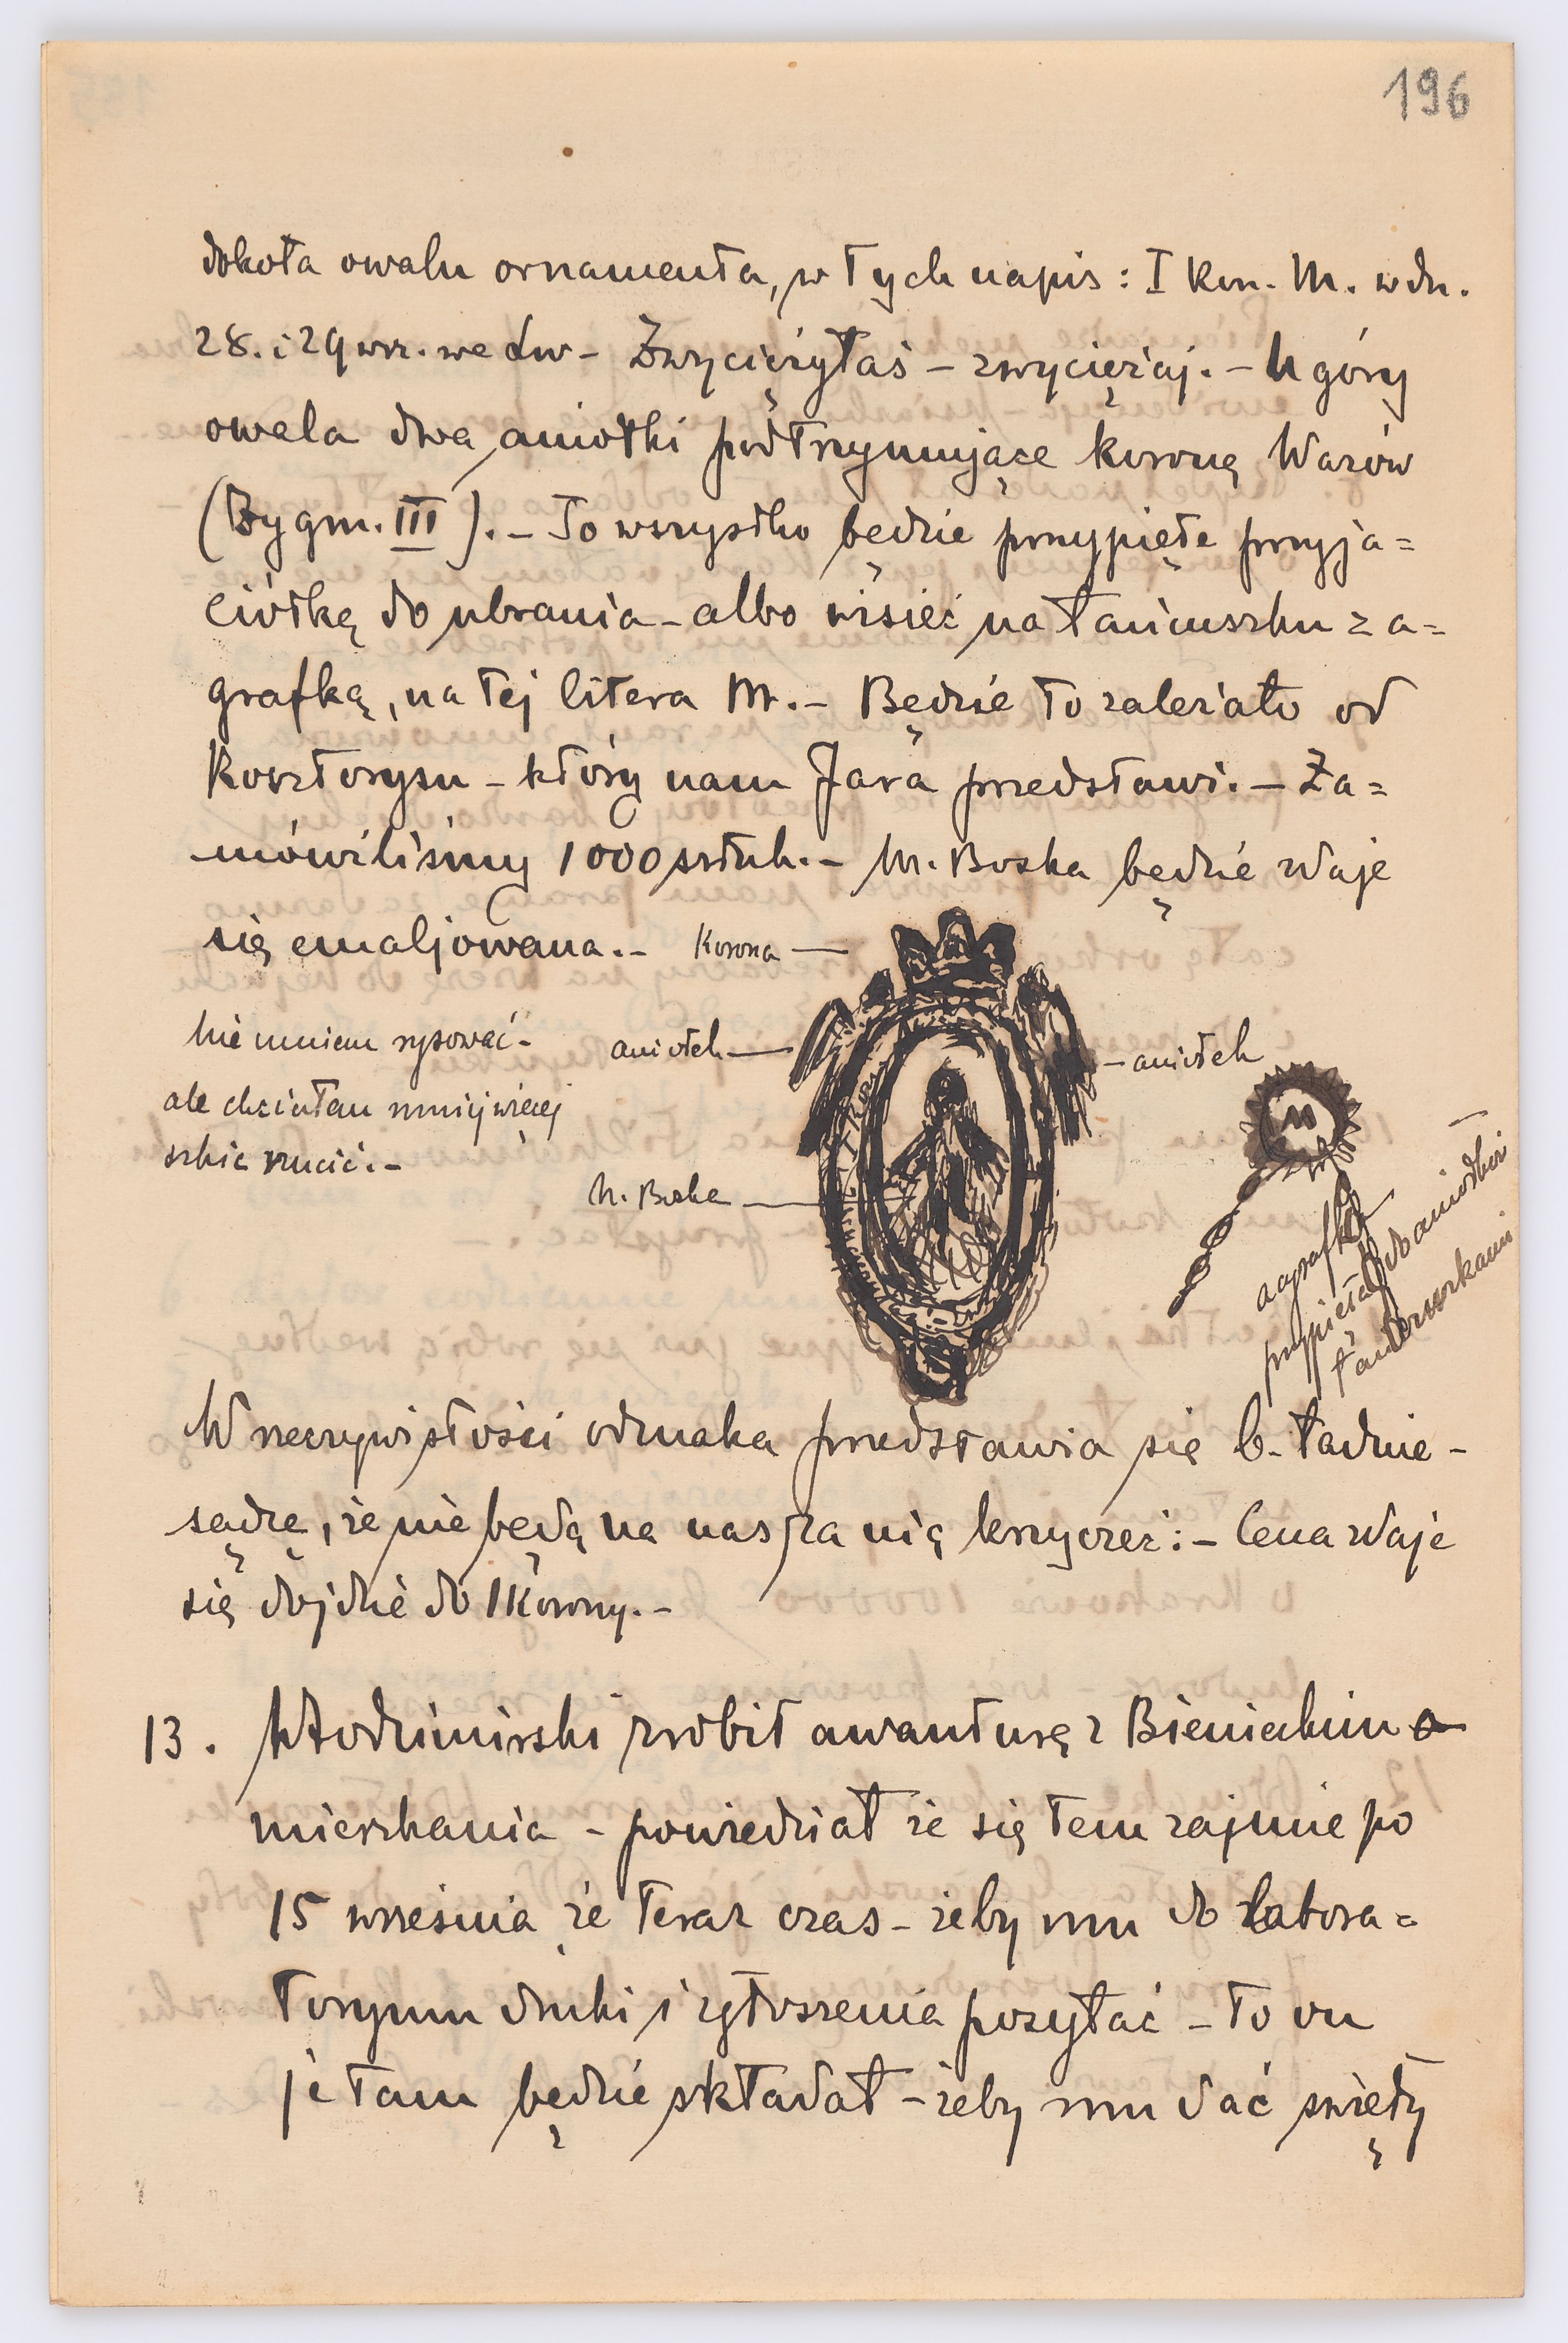 196
dokoła owalu ornamenta, w tych napis: I Kon. M. w dn.
28. i 29 wrz. we Lw - Zwyciężyłaś - zwyciężaj. - U góry
owala dwa aniołki podtrzymujące koronę Wazów
(Zygm. III). - To wszystko będzie przypięte przyja=
ciółką do ubrania - albo wisieć na łańcuszku z a=
grafką, na tej litera M. - Będzie to zależało od
Kosztorysu - który nam Jara przedstawi. - Za=
mówiliśmy 1000 sztuk. - M. Boska będzie zdaje
się emaljowana. -
Korona
aniołek
aniołek
M. Boska
M
Nie umiem rysować -
ale chciałam mniej więcej
szkic rzucić. -
agrafka
przypięta do aniołków
łańcuszkami
W rzeczywistości odznaka przedstawia się b. ładnie -
sądzę, że nie będą na nas za nią krzyczeć: - Cena zdaje
się dojdzie do 1 Korony. -
13. Włodzimirski zrobił awanturę z Bieniakiem o
mieszkania - powiedział że się tem zajmie po
15 września że teraz czas - żeby mu do labora=
toryum druki i zgłoszenia posyłać - to on
je tam będzie składał - żeby mu dać święty